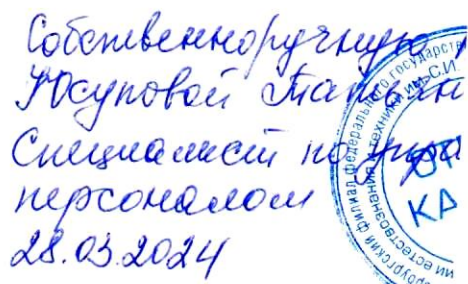 Собственноручную
Юсуповой Татьян
Специалист по упра
персоналом
28.03.2024
ОТ
КА
ргский филиал федерального государств
естествознания и техники им. С.И